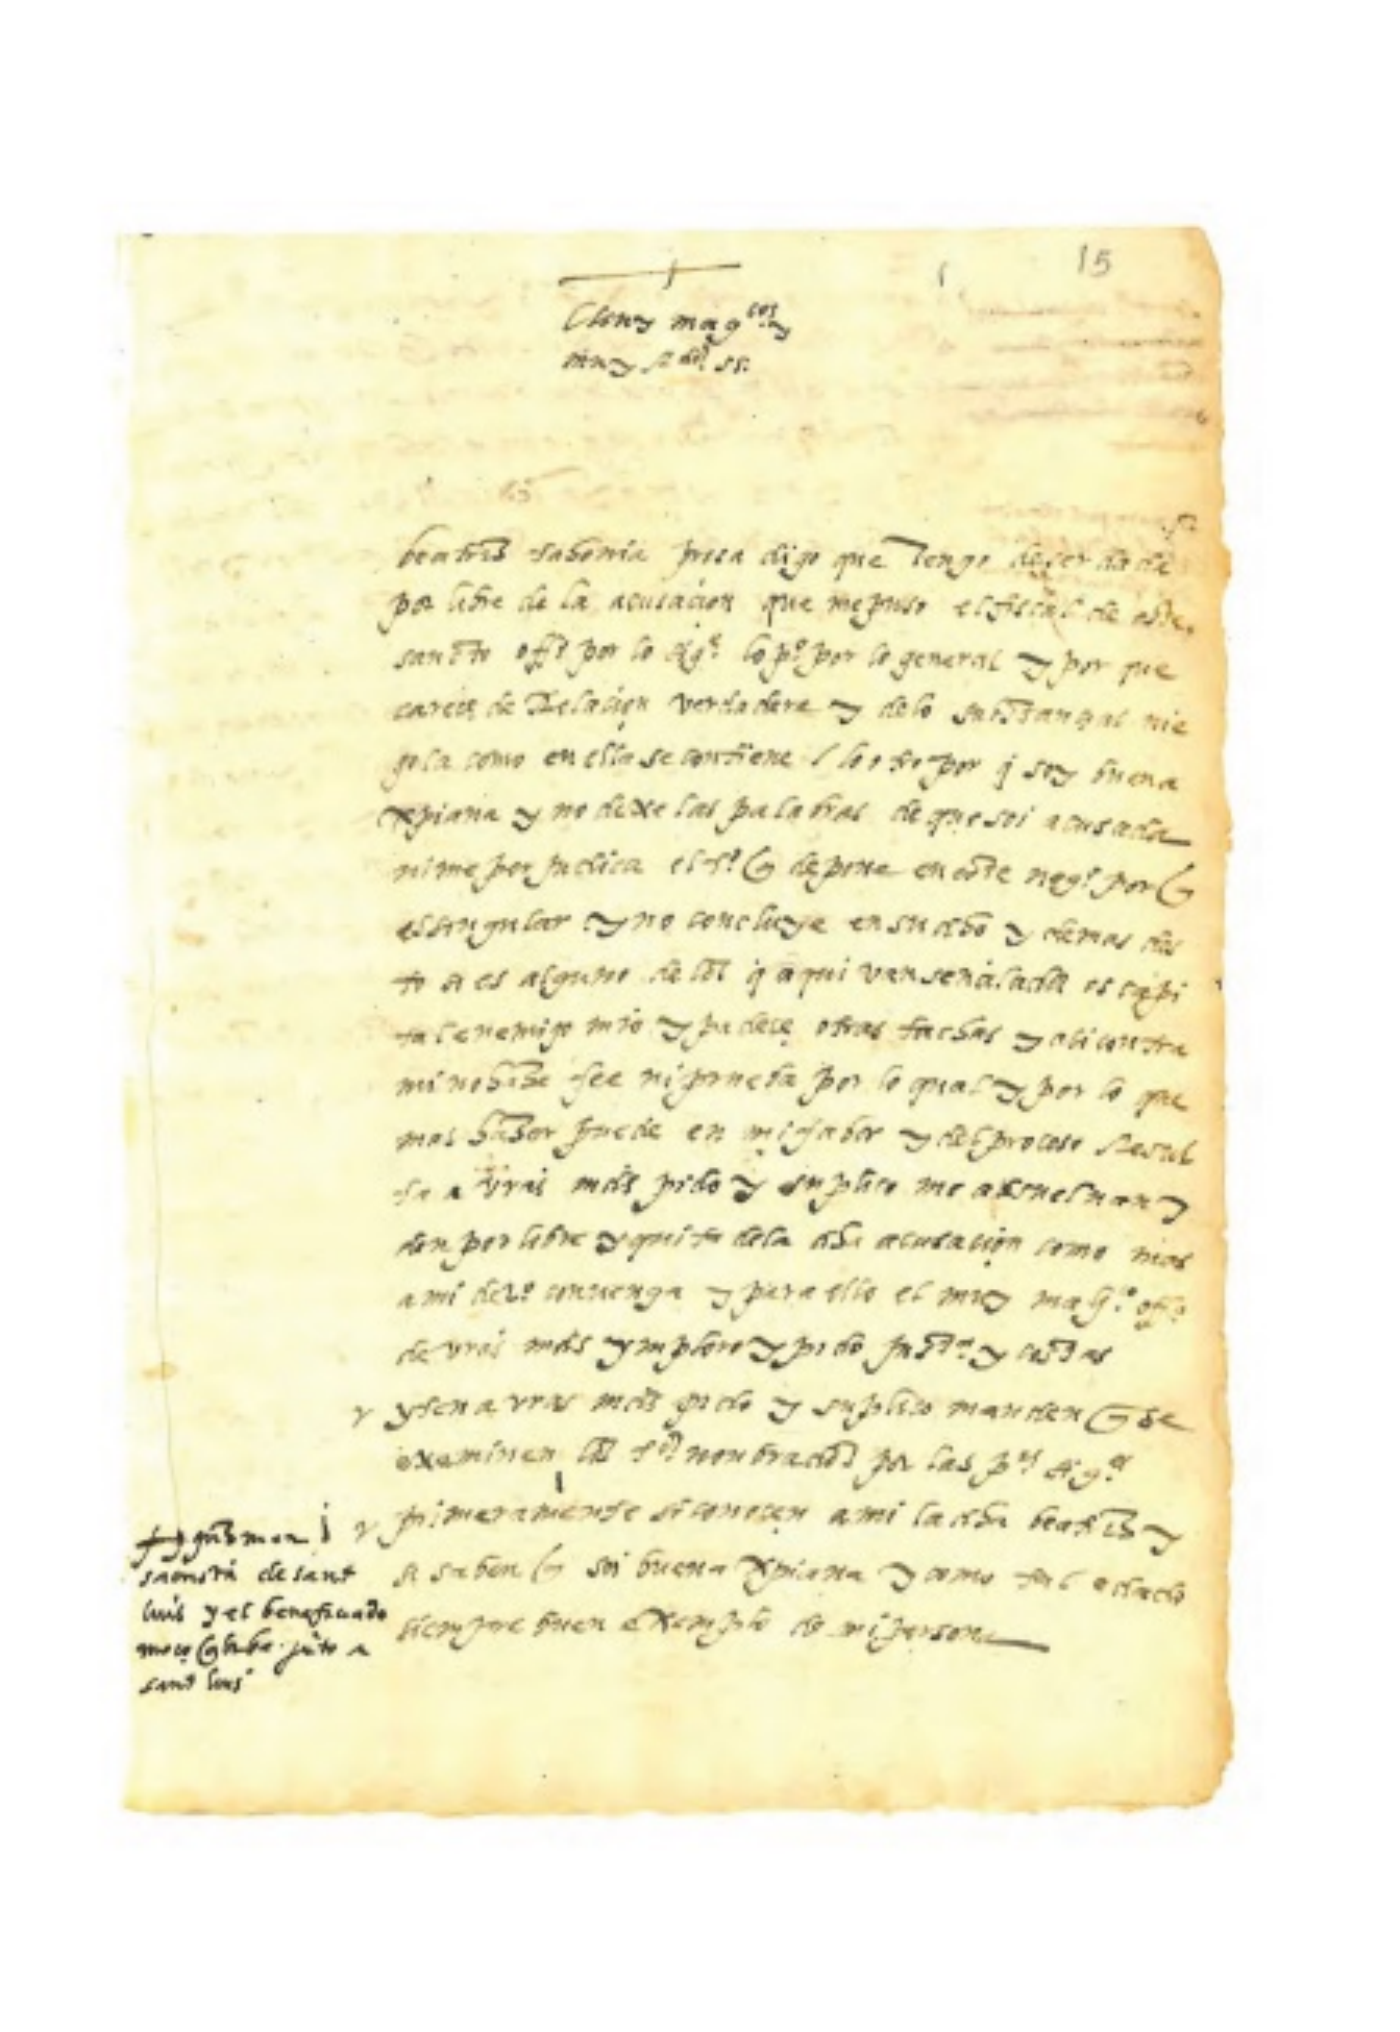 15
muy mag.cos y
muy R.dos ss.
beatris presa digo que tengo de ser dada
por libre de la acusacion que me puso el fiscal de este
santo off.o por lo sig.e lo p.o por lo general y por que
careçe de Relaçion verdadera y de lo sustançial nie
gola como en ella se contiene / lo otro por q soy buena
xpiana y no dixe las palabras de que soi acusada
ni me perjudica el t.o q depone en este neg.o por q
es singular y no concluye en su dho y demas des
to si es alguno de los q aqui van señalados es capi
tal enemigo mio y padeçe otras tachas y asi contra
mi no haze fee ni prueba por lo qual y por lo que
mas haber puede en mi fabor y del proceso Resul
ta a vras mds pido y suplico me absuelvan y
den por libre y quita de la dha acusaçion como mas
a mi dr.o convenga y para ello el muy mag.co off.o
de vras mds ymploro y pido just.a y costas
yten a vras mds pido y suplico manden q se
examinen los t.os nonbrados por las p.as sig.es
primeramente si conoçen a mi la dha beatris y
si saben q soi buena xpiana y como tal e dado
siempre buen exemplo de mi persona
guzman
sacristan de sant
luis y el beneficiado
q bibe jūto a
sant luis